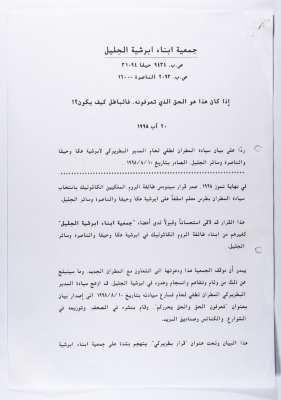 جمعية ابناء ابرشية الجليل
ص.ب. ٩٤٣٤ حيفا ٣١٠٩٤
ص.ب. ٢٠٩٣ الناصرة ١٦٠٠٠
إذا كان هذا هو الحق الذي تعرفونه، فالباطل كيف يكون؟!
٢٠ آب ١٩٩٨
ردًا على بيان سيادة المطران لطفي لحام المدبر البطريركي لابرشية عكا وحيفا
والناصرة وسائر الجليل، الصادر بتاريخ ١٩٩٨/٨/١٠ .
في نهاية تموز ١٩٩٨، صدر قرار سينودس طائفة الروم الملكيين الكاثوليك بانتخاب
سيادة المطران بطرس معلم اسقفًا على ابرشية عكا وحيفا والناصرة وسائر الجليل.
هذا القرار قد لاقى استحسانًا وقبولاً لدى أعضاء "جمعية ابناء ابرشية الجليل"
كغيرهم من ابناء طائفة الروم الكاثوليك في ابرشية عكا وحيفا والناصرة وسائر
الجليل.
يبدو أن موقف الجمعية هذا ودعوتها الى التعاون مع المطران الجديد، وما سينبع
عن ذلك من وئام وتفاهم وانسجام وهدوء في أبرشية الجليل، قد ازعج سيادة المدبر
البطريركي المطران لطفي لحام فسارع سيادته بتاريخ ١٩٩٨/٨/١٠ الى إصدار بيان
بعنوان "تعرفون الحق والحق يحرركم" وقام بنشره في الصحف، وتوزيعه في
الشوارع، والكنائس وصناديق البريد.
هذا البيان وتحت عنوان "قرار بطريركي" يتهجم بشدة على جمعية ابناء ابرشية